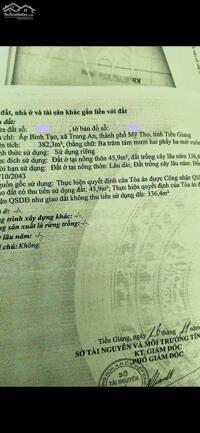 đất, nhà ở và tài sản khác gắn liền với đất
đất:
đất số: tờ bản đồ số:
chỉ: Ấp Bình Tạo, xã Trung An, thành phố Mỹ Tho, tỉnh Tiền Giang
tích: 382,3m², (bằng chữ: Ba trăm tám mươi hai phẩy ba mét vuông
thức sử dụng: Sử dụng riêng
đích sử dụng: Đất ở tại nông thôn 45,9m², đất trồng cây lâu năm 336,4
hạn sử dụng: Đất ở tại nông thôn: Lâu dài; Đất trồng cây lâu năm: đến
/10/2043
gốc sử dụng: Thực hiện quyết định của Tòa án được Công nhận QSD
đất có thu tiền sử dụng đất: 45,9m²; Thực hiện quyết định của Tòa án đ
nhận QSDĐ như giao đất không thu tiền sử dụng đất: 336,4m²
ở: -/-
trình xây dựng khác: -/-
sản xuất là rừng trồng: -/-
lâu năm: -/-
chú: Không.
Tiền Giang,
SỞ TÀI NGUYÊN VÀ MÔI TRƯỜNG TỈN
KT. GIÁM ĐỐC
PHÓ GIÁM ĐỐC
SỞ
TÀI NGUYÊN